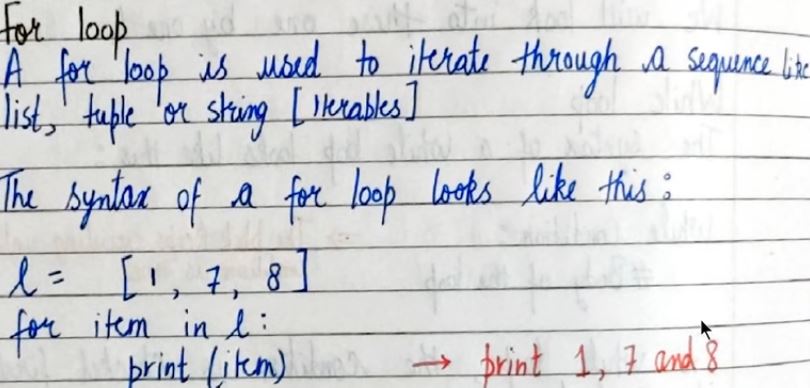 for loop
A for loop is used to iterate through a sequence like
list, tuple or string [iterables]
The syntax of a for loop looks like this:
l = [1, 7, 8]
for item in l:
print (item) → print 1, 7 and 8